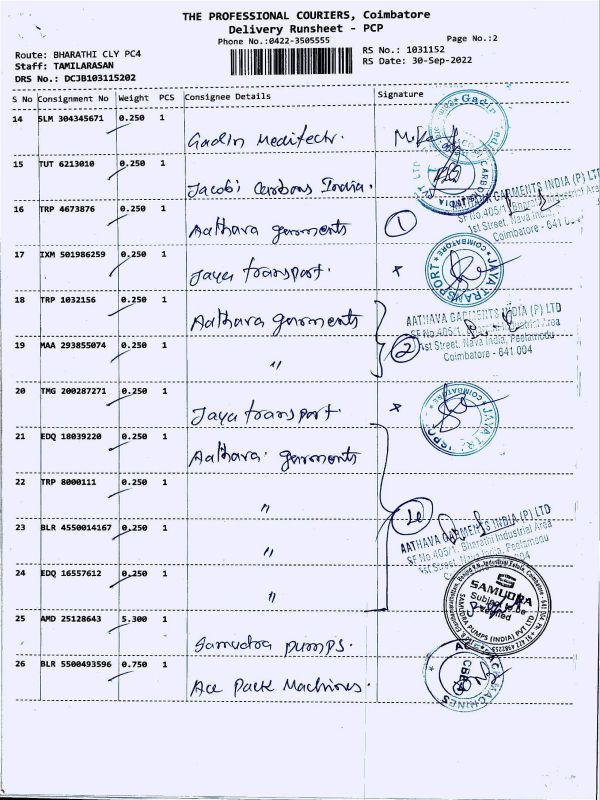 THE PROFESSIONAL COURIERS, Coimbatore
Delivery Runsheet - PCP
Phone No.:0422-3505555
Page No.:2
Route: BHARATHI CLY PC4
RS No.: 1031152
Staff: TAMILARASAN
RS Date: 30-Sep-2022
DRS No.: DCJB103115202
S No Consignment No Weight PCS Consignee Details Signature
14 SLM 304345671 0.250 1 Gadin Meditech.
15 TUT 6213010 0.250 1 Jacobi Carbons India.
16 TRP 4673876 0.250 1 Aathava garments 1
AATHAVA GARMENTS INDIA (P) LTD
SF No.405/1, Bharathi Industrial Area
1st Street, Nava India,
Coimbatore - 641
17 IXM 501986259 0.250 1 Jaya transport. x
JAYA TRANSPORT * COIMBATORE *
18 TRP 1032156 0.250 1 Aathava garments
19 MAA 293855074 0.250 1 " 2
AATHAVA GARMENTS INDIA (P) LTD
SF No.405/1, Bharathi Industrial Area
1st Street, Nava India, Peelamedu
Coimbatore - 641 004
20 TMG 200287271 0.250 1 Jaya transport. x
21 EDQ 18039220 0.250 1 Aathava garments
22 TRP 8000111 0.250 1 "
23 BLR 4550014167 0.250 1 "
AATHAVA GARMENTS INDIA (P) LTD
SF No.405/1, Bharathi Industrial Area
1st Street, Nava India, Peelamedu
24 EDQ 16557612 0.250 1 "
25 AMD 25128643 5.300 1 Samudra pumps.
SAMUDRA
Subject to be
verified
SAMUDRA PUMPS (INDIA) PVT LTD
26 BLR 5500493596 0.750 1 Ace Pack Machines.